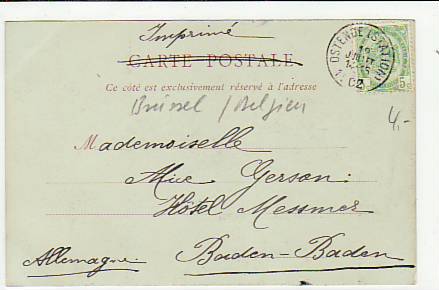 Imprimé
CARTE POSTALE
Ce côté est exclusivement réservé à l'adresse
OSTENDE (STATION)
JUIL
02
5
Brüssel / Belgien
4,-
Mademoiselle
Alice Gerson
Hôtel Messmer
Baden-Baden
Allemagne